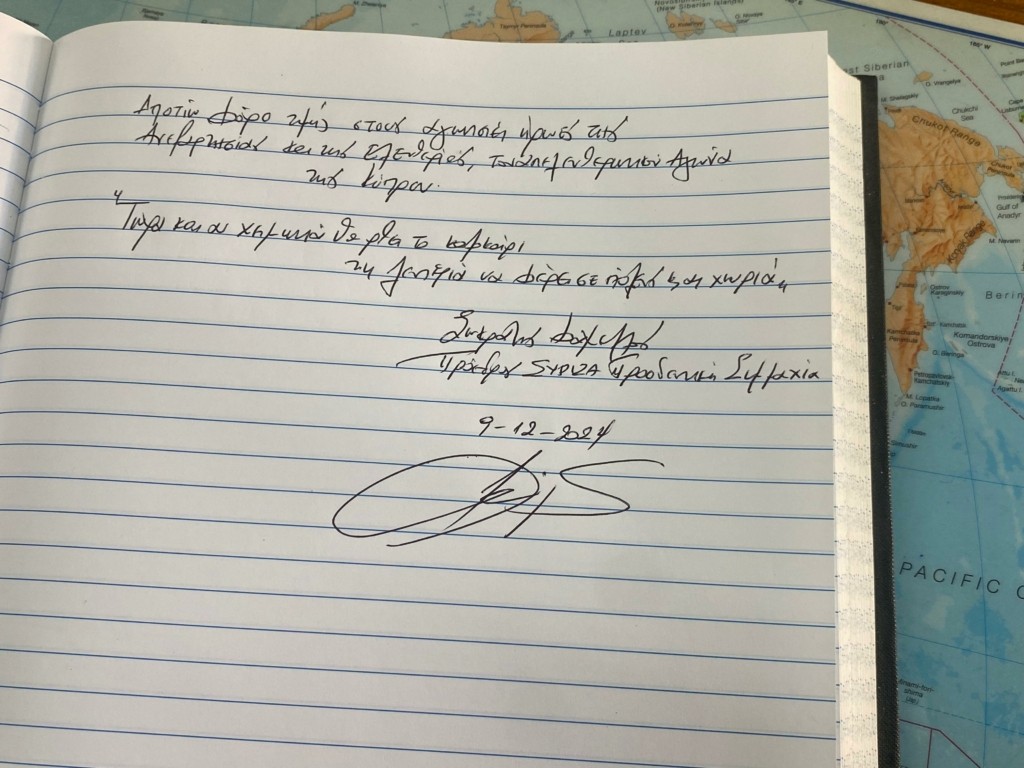 Αποτίω φόρο τιμής στους αγωνιστές ήρωες της
Ανεξαρτησίας και της Ελευθερίας, του απελευθερωτικού Αγώνα
της Κύπρου.
"Τώρα και αν χειμωνιά θε ρθει το καλοκαίρι
τη λευτεριά να φέρει σε πόλεις και χωριά"
Σωκράτης Φάμελλος
Πρόεδρος ΣΥΡΙΖΑ Προοδευτική Συμμαχία
9-12-2024
Laptev
New Siberian Islands)
st Siberian
Chukchi
Sea
Chukot Range
Gulf of
Anadyr
M. Navarin
Berin
Komandorskiye
Ostrova
M. Lopatka
O. Paramushir
PACIFIC O
180°
180° W